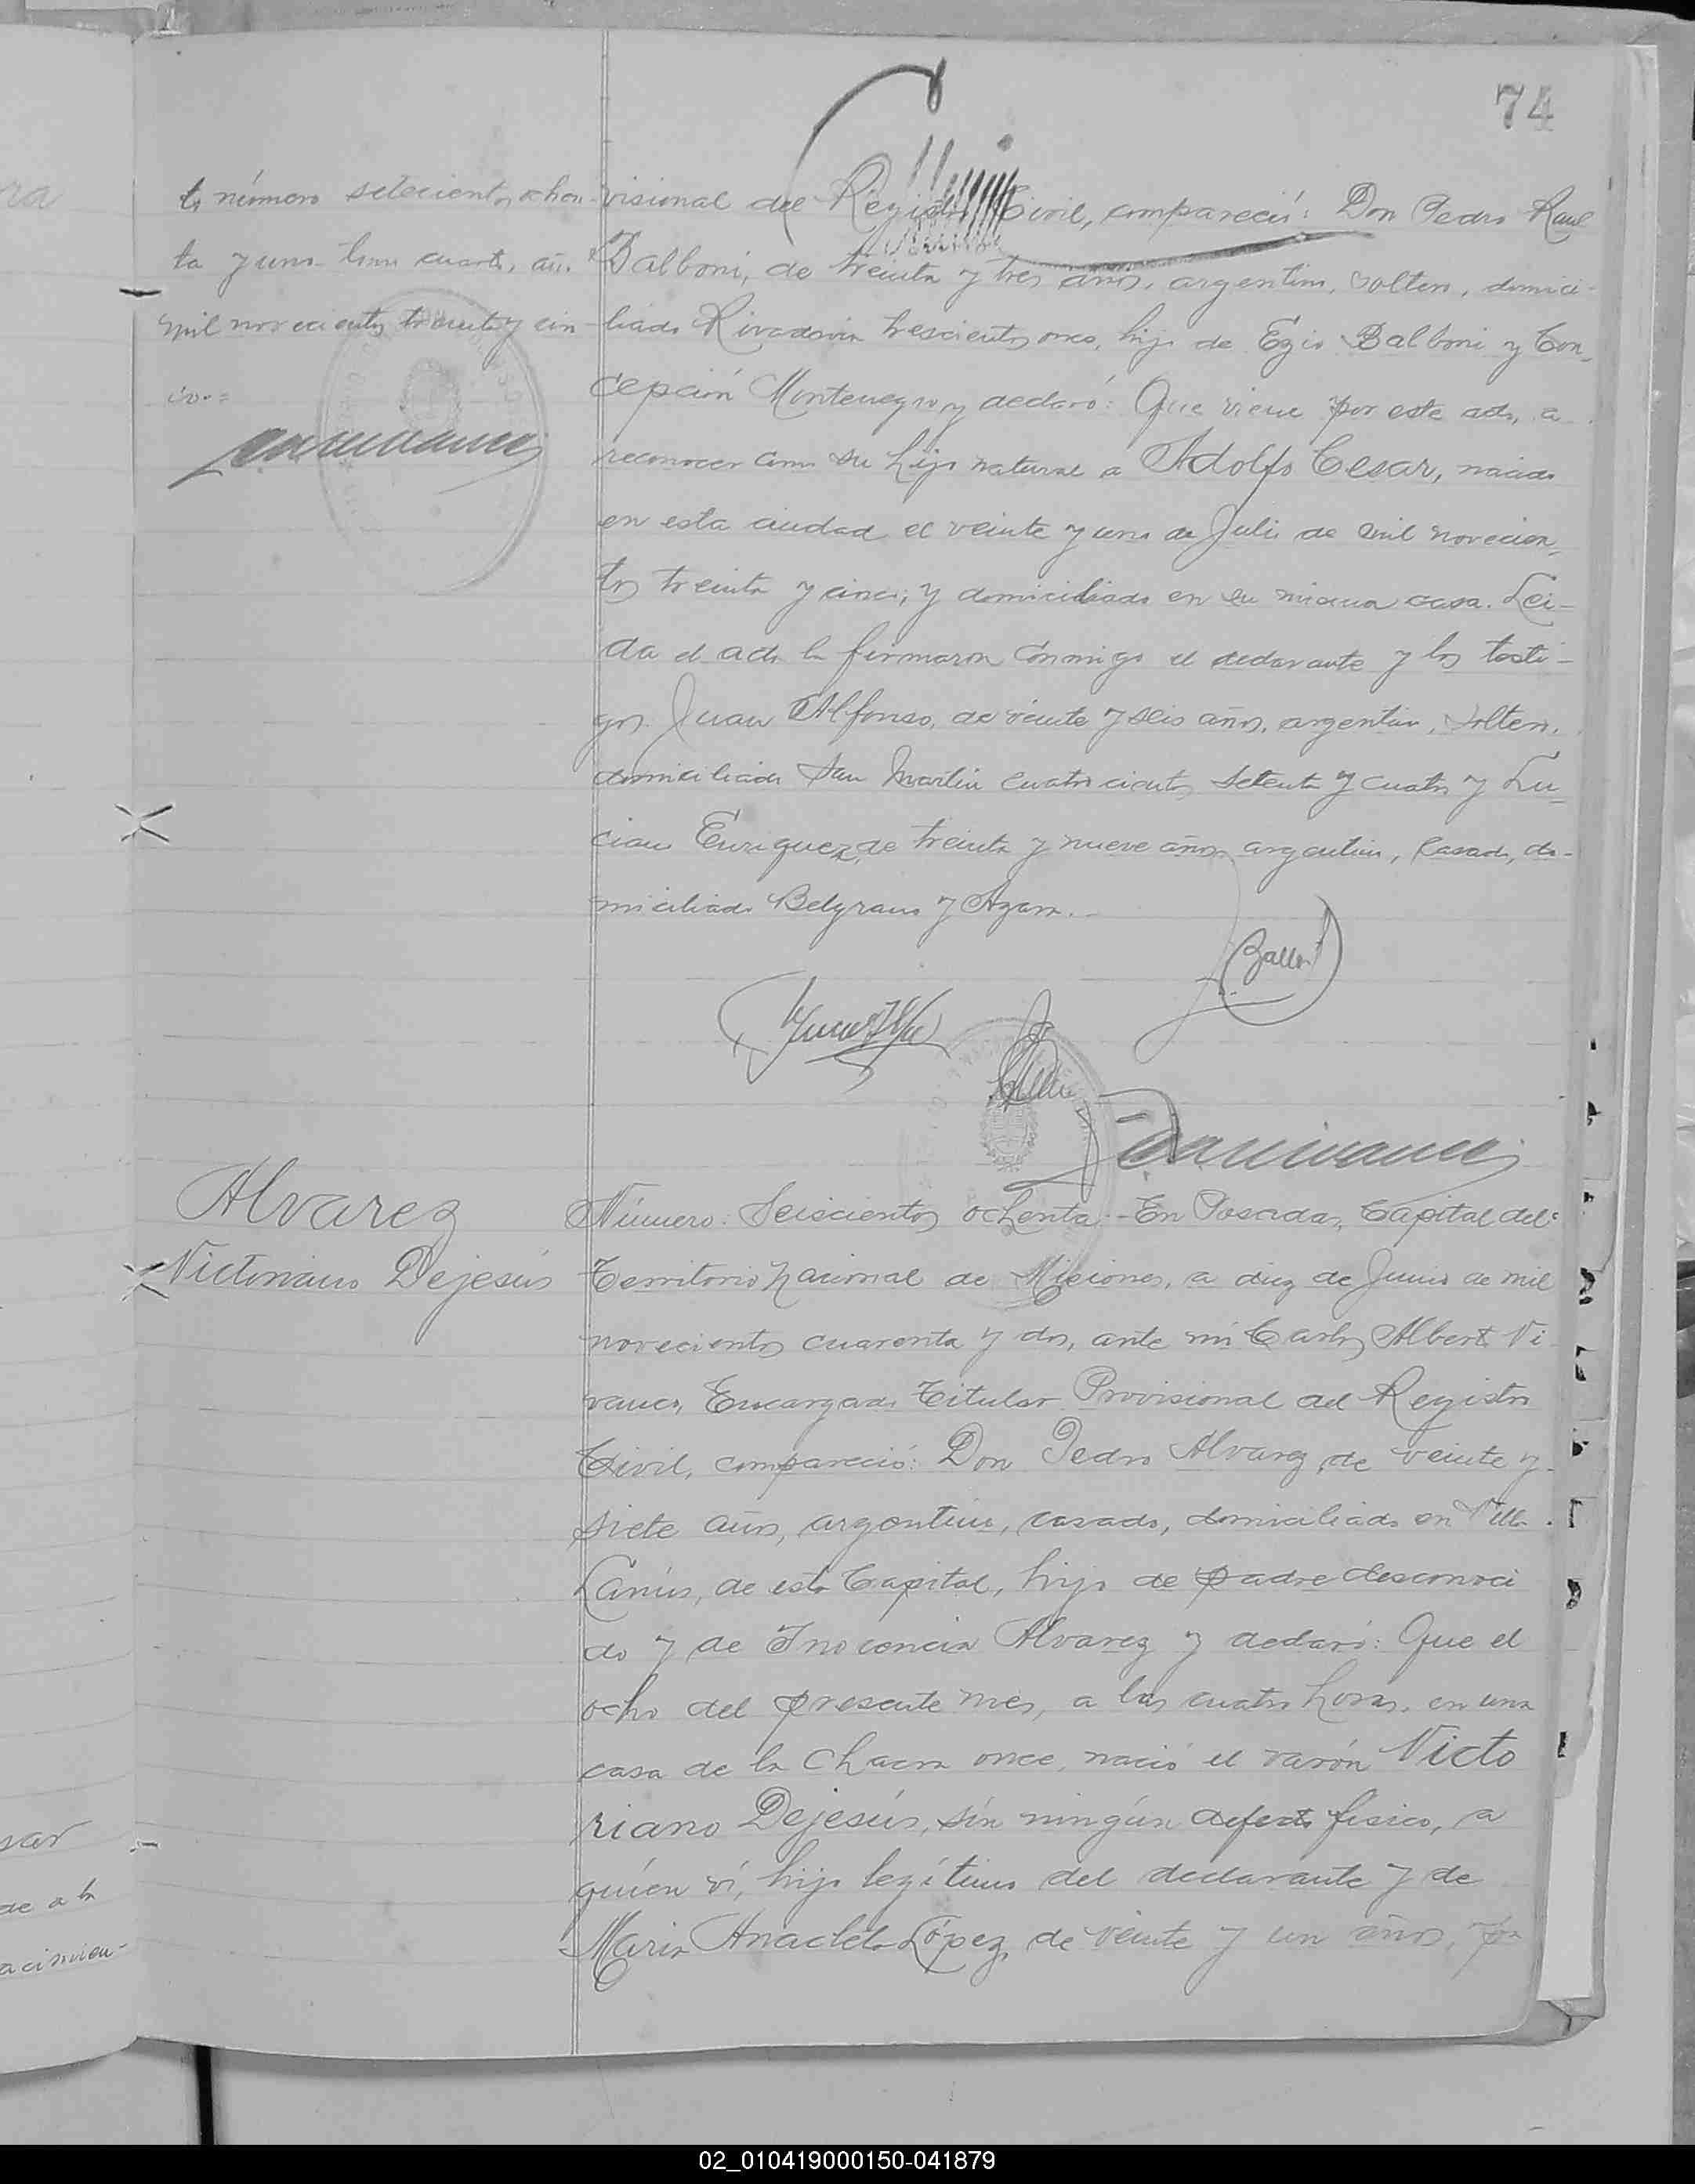 74
to número setecientos ochen-
ta y uno tomo cuarto, año
mil novecientos treinta y cin-
co.=
visional del Registro Civil, compareció: Don Pedro Raul
Balboni, de treinta y tres años, argentino, soltero, domici-
liado Rivadavia trescientos once, hijo de Egio Balboni y Con-
cepción Montenegro y declaró: Que viene por este acto, a
reconocer como su hijo natural a Adolfo Cesar, nacido
en esta ciudad el veinte y uno de Julio de mil novecien-
tos treinta y cinco; y domiciliado en su misma casa. Lei-
da el acta la firmaron conmigo el declarante y los testi-
gos Juan Alfonso, de veinte y seis años, argentino, soltero,
domiciliado San Martin cuatrocientos setenta y cuatro y Lu-
ciano Enriquez, de treinta y nueve años, argentino, casado, do-
miciliado Belgrano y Azara.-
Alvarez
Victoriano Dejesús
Número: Seiscientos ochenta.- En Posadas, Capital del
Territorio Nacional de Misiones, a diez de Junio de mil
novecientos cuarenta y dos, ante mi Carlos Alberto Vi
vanco, Encargado Titular Provisional del Registro
Civil, compareció: Don Pedro Alvarez, de veinte y
siete años, argentino, casado, domiciliado en Villa
Lanús, de esta Capital, hijo de padre desconoci
do y de Inocencia Alvarez y declaró: Que el
ocho del presente mes, a las cuatro horas, en una
casa de la Chacra once, nació el varón Victo
riano Dejesús, sin ningún defecto físico, a
quien ví, hijo legítimo del declarante y de
Maria Anacleta López, de veinte y un años,
ra
sar
de a la
acimien-
02_010419000150-041879